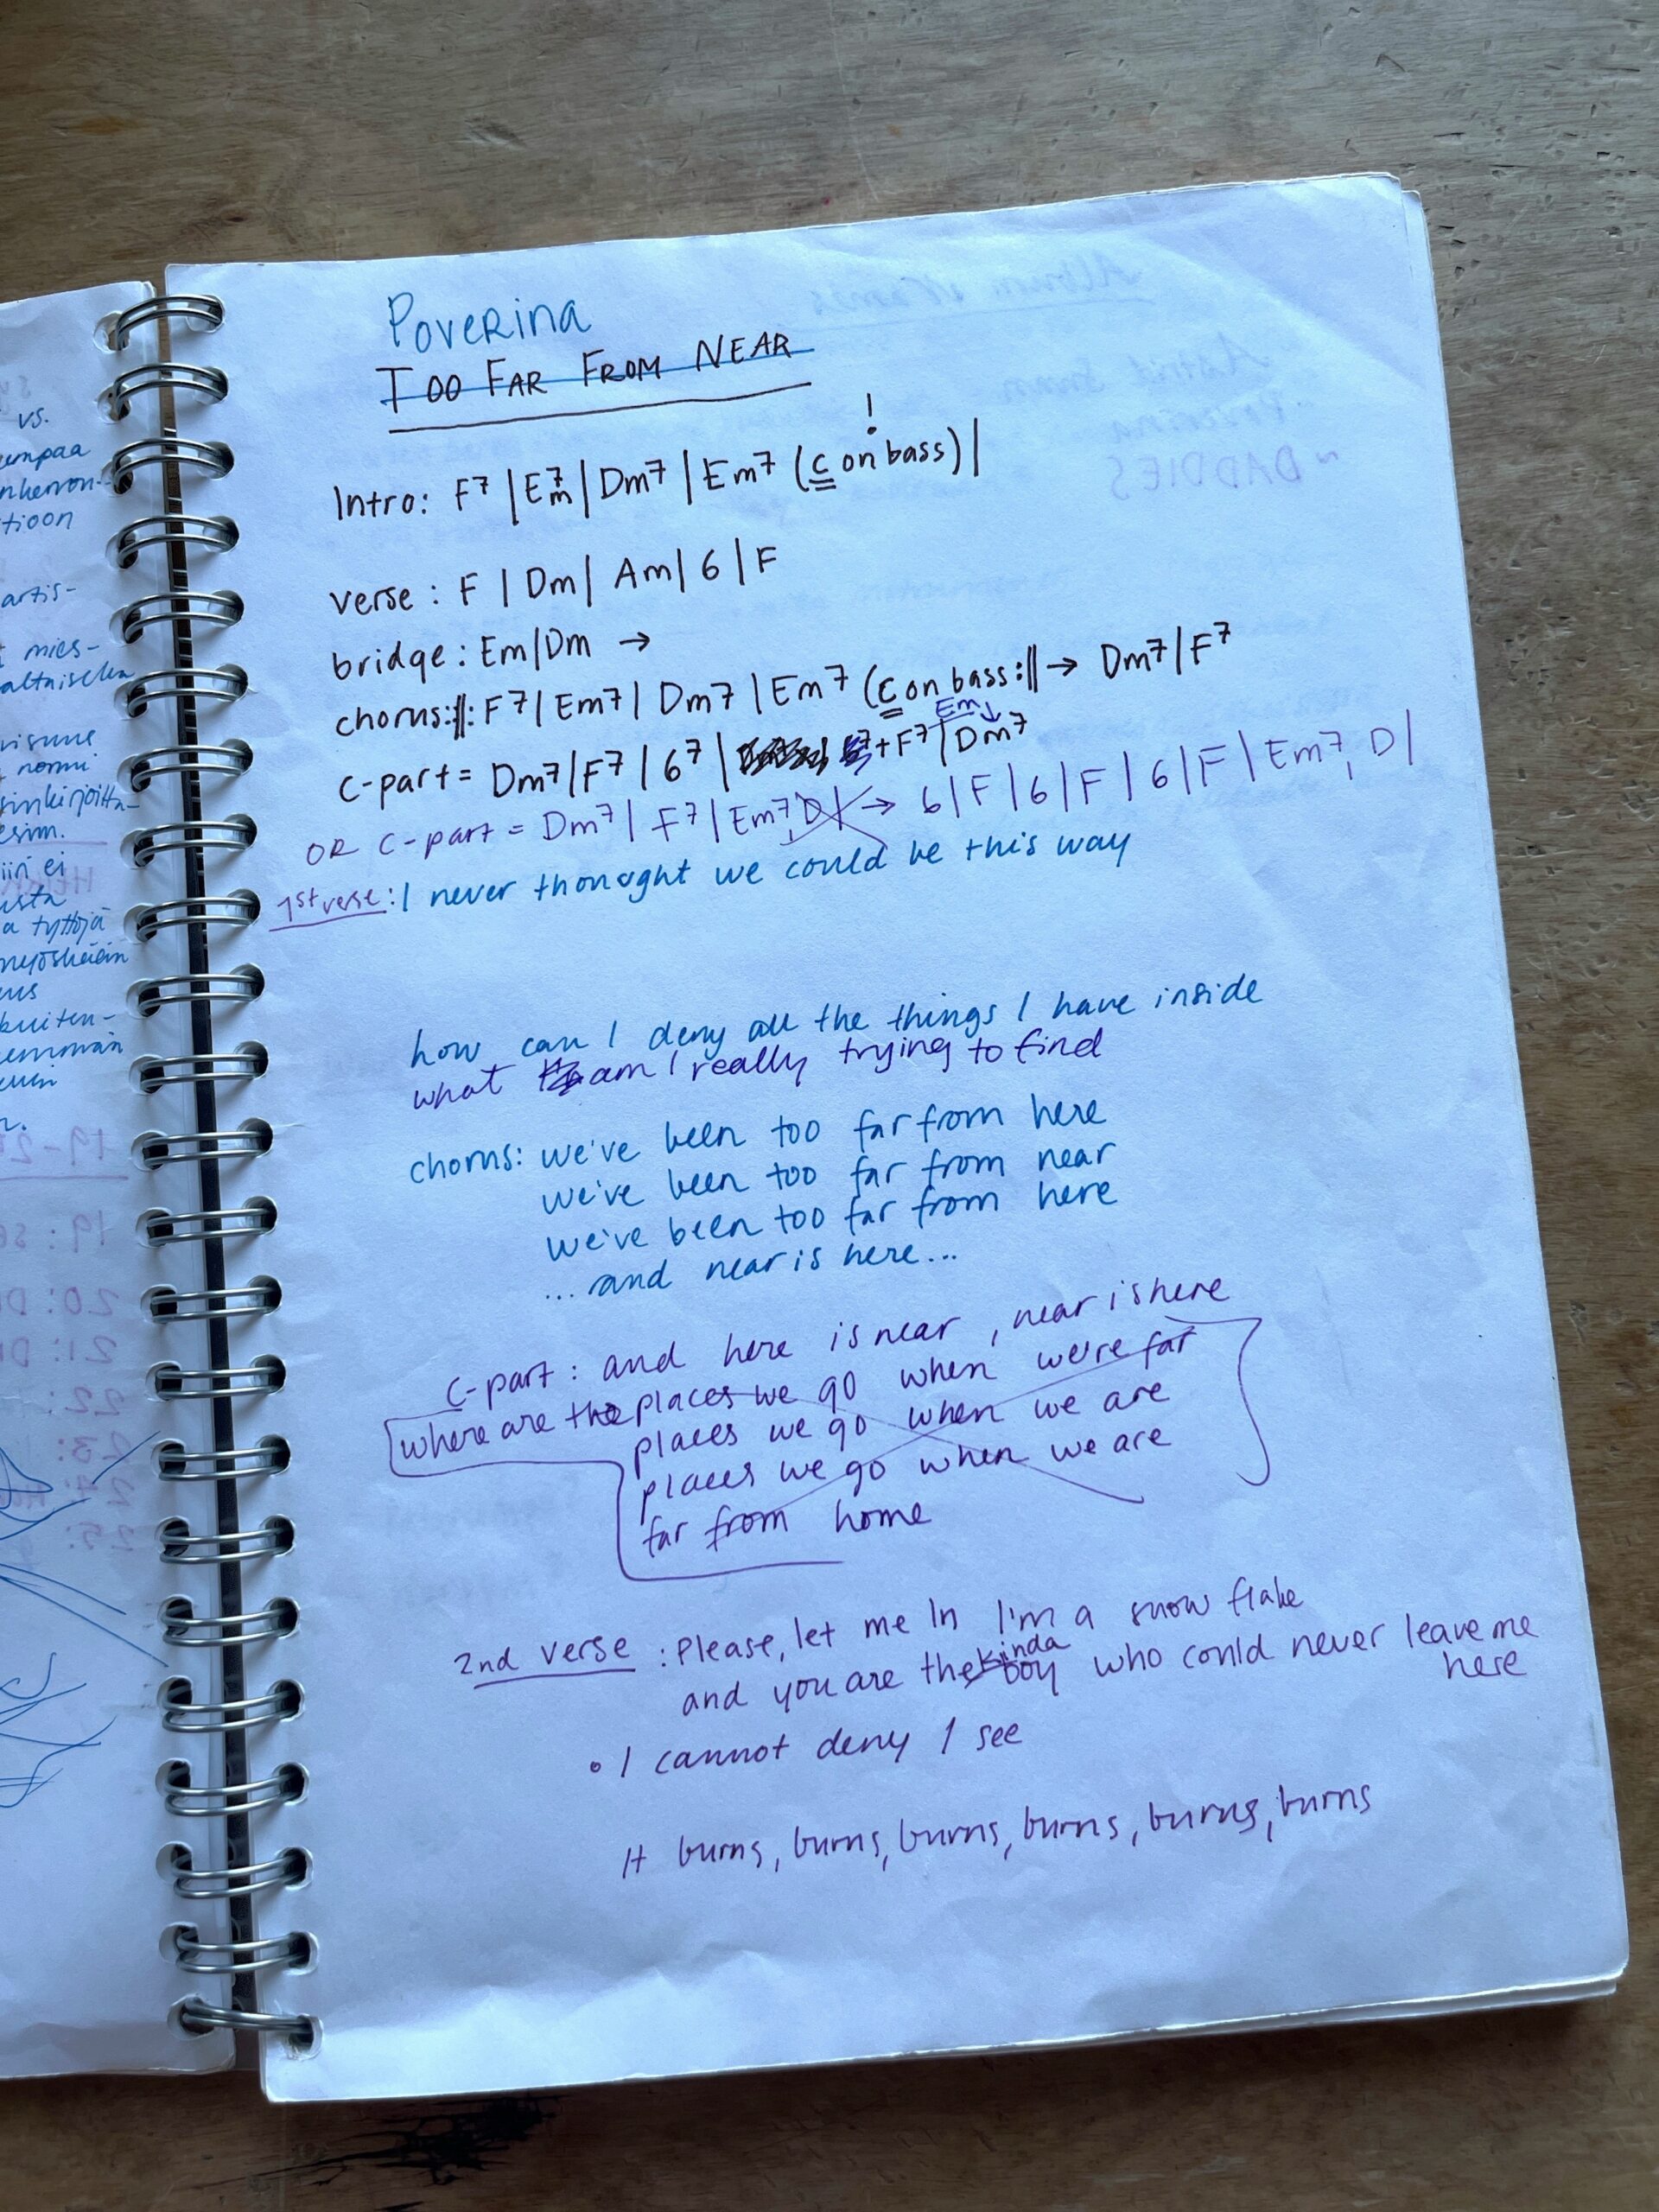 vs.
artis-
mies-
normi
esim.
iin ei
a tyttöjä
kuiten-
Poverina
TOO FAR FROM NEAR
Intro: F7 | Em7 | Dm7 | Em7 (C on bass) | !
verse : F | Dm | Am | G | F
bridge : Em/Dm →
chorus: ||: F7 | Em7 | Dm7 | Em7 (C on bass :|| → Dm7 | F7
C-part = Dm7 | F7 | G7 | +F7 | Em ↓ Dm7
OR C-part = Dm7 | F7 | Em7, D | → G | F | G | F | G | F | Em7, D |
1st verse : I never thonought we could be this way
how can I deny all the things I have inside
what am I really trying to find
chorus: we've been too far from here
we've been too far from near
we've been too far from here
... and near is here...
C-part : and here is near, near is here
where are the places we go when we're far
places we go when we are
places we go when we are
far from home
2nd verse : Please, let me In I'm a snow flake
and you are the kinda boy who could never leave me
here
• I cannot deny I see
It burns, burns, burns, burns, burns, burns